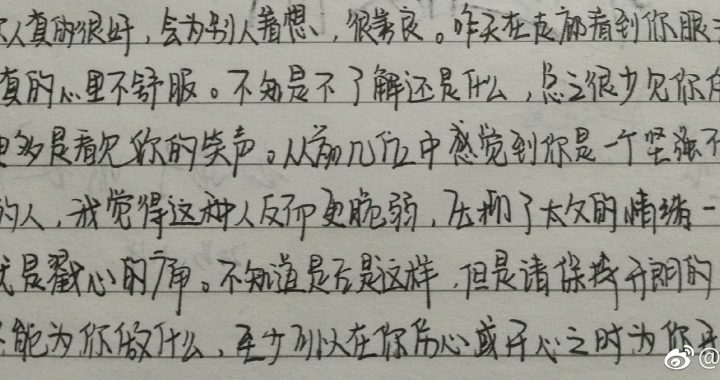 人真的很好，会为别人着想，很善良。昨天在走廊看到你眼
真的心里不舒服。不知是不了解还是什么，总之很少见你
更多是看见你的笑声。从前几位中感觉到你是一个坚强不
的人，我觉得这种人反而更脆弱，压抑了太久的情绪一
是戳心的痛。不知道是否是这样，但是请保持开朗的
能为你做什么，至少可以在你伤心或开心之时为你
@